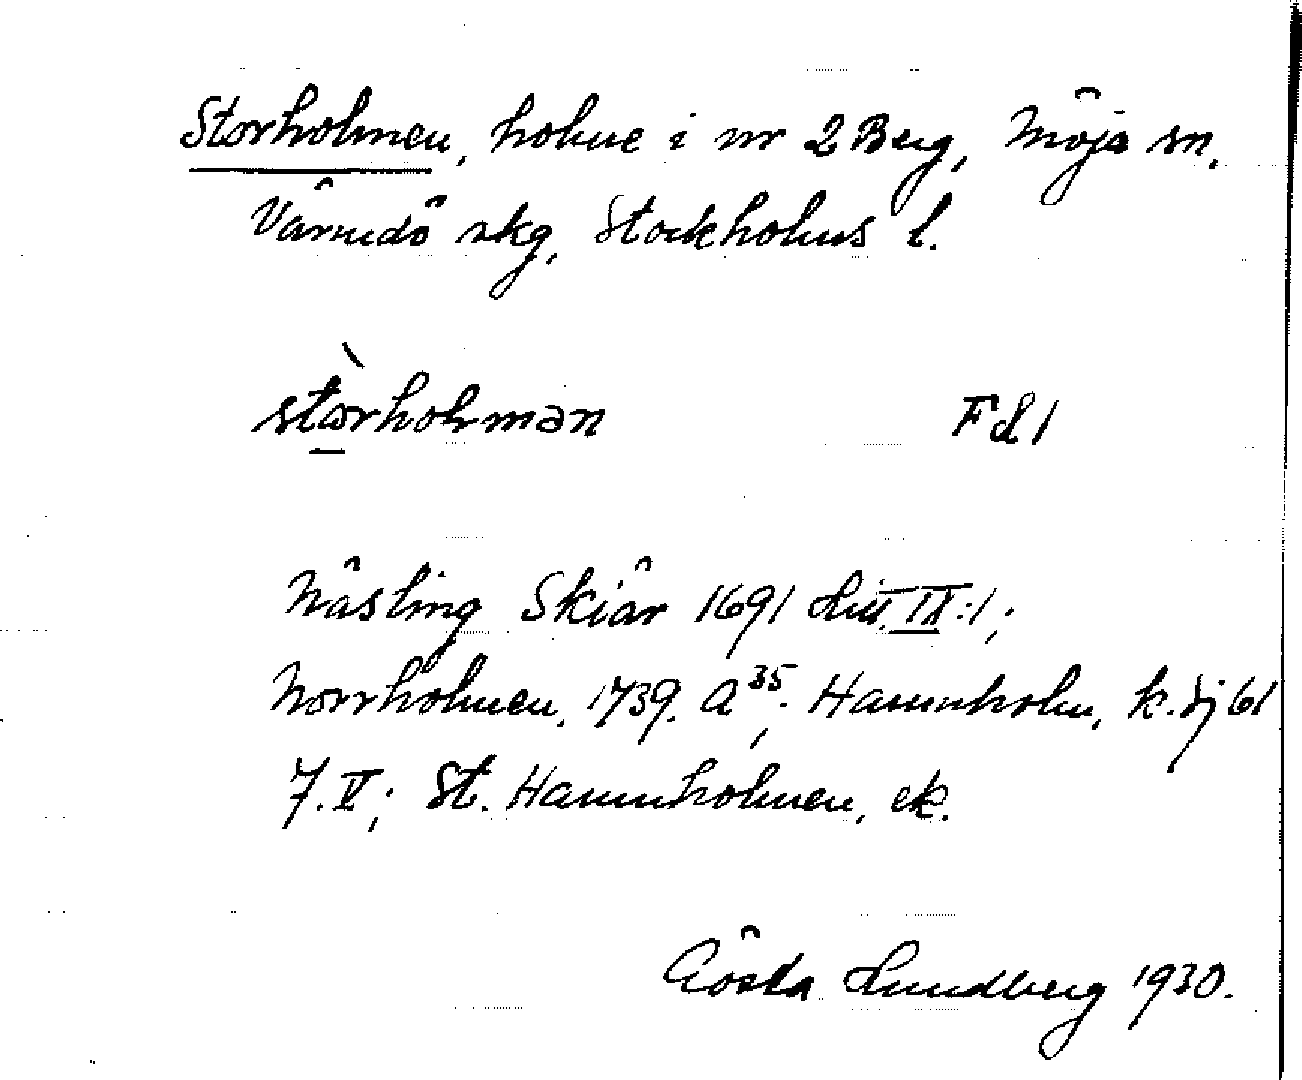 Storholmen, holme i nr 2 Berg, Möja sn.
Värmdö skg, Stockholms l.
stòrholmən FL1
Näsling Skiär 1691 Litt. IX:1;
Norrholmen, 1739. A35; Hamnholm, k. Sj 61
7.V; St. Hamnholmen, ek.
Gösta Lundberg 1930.